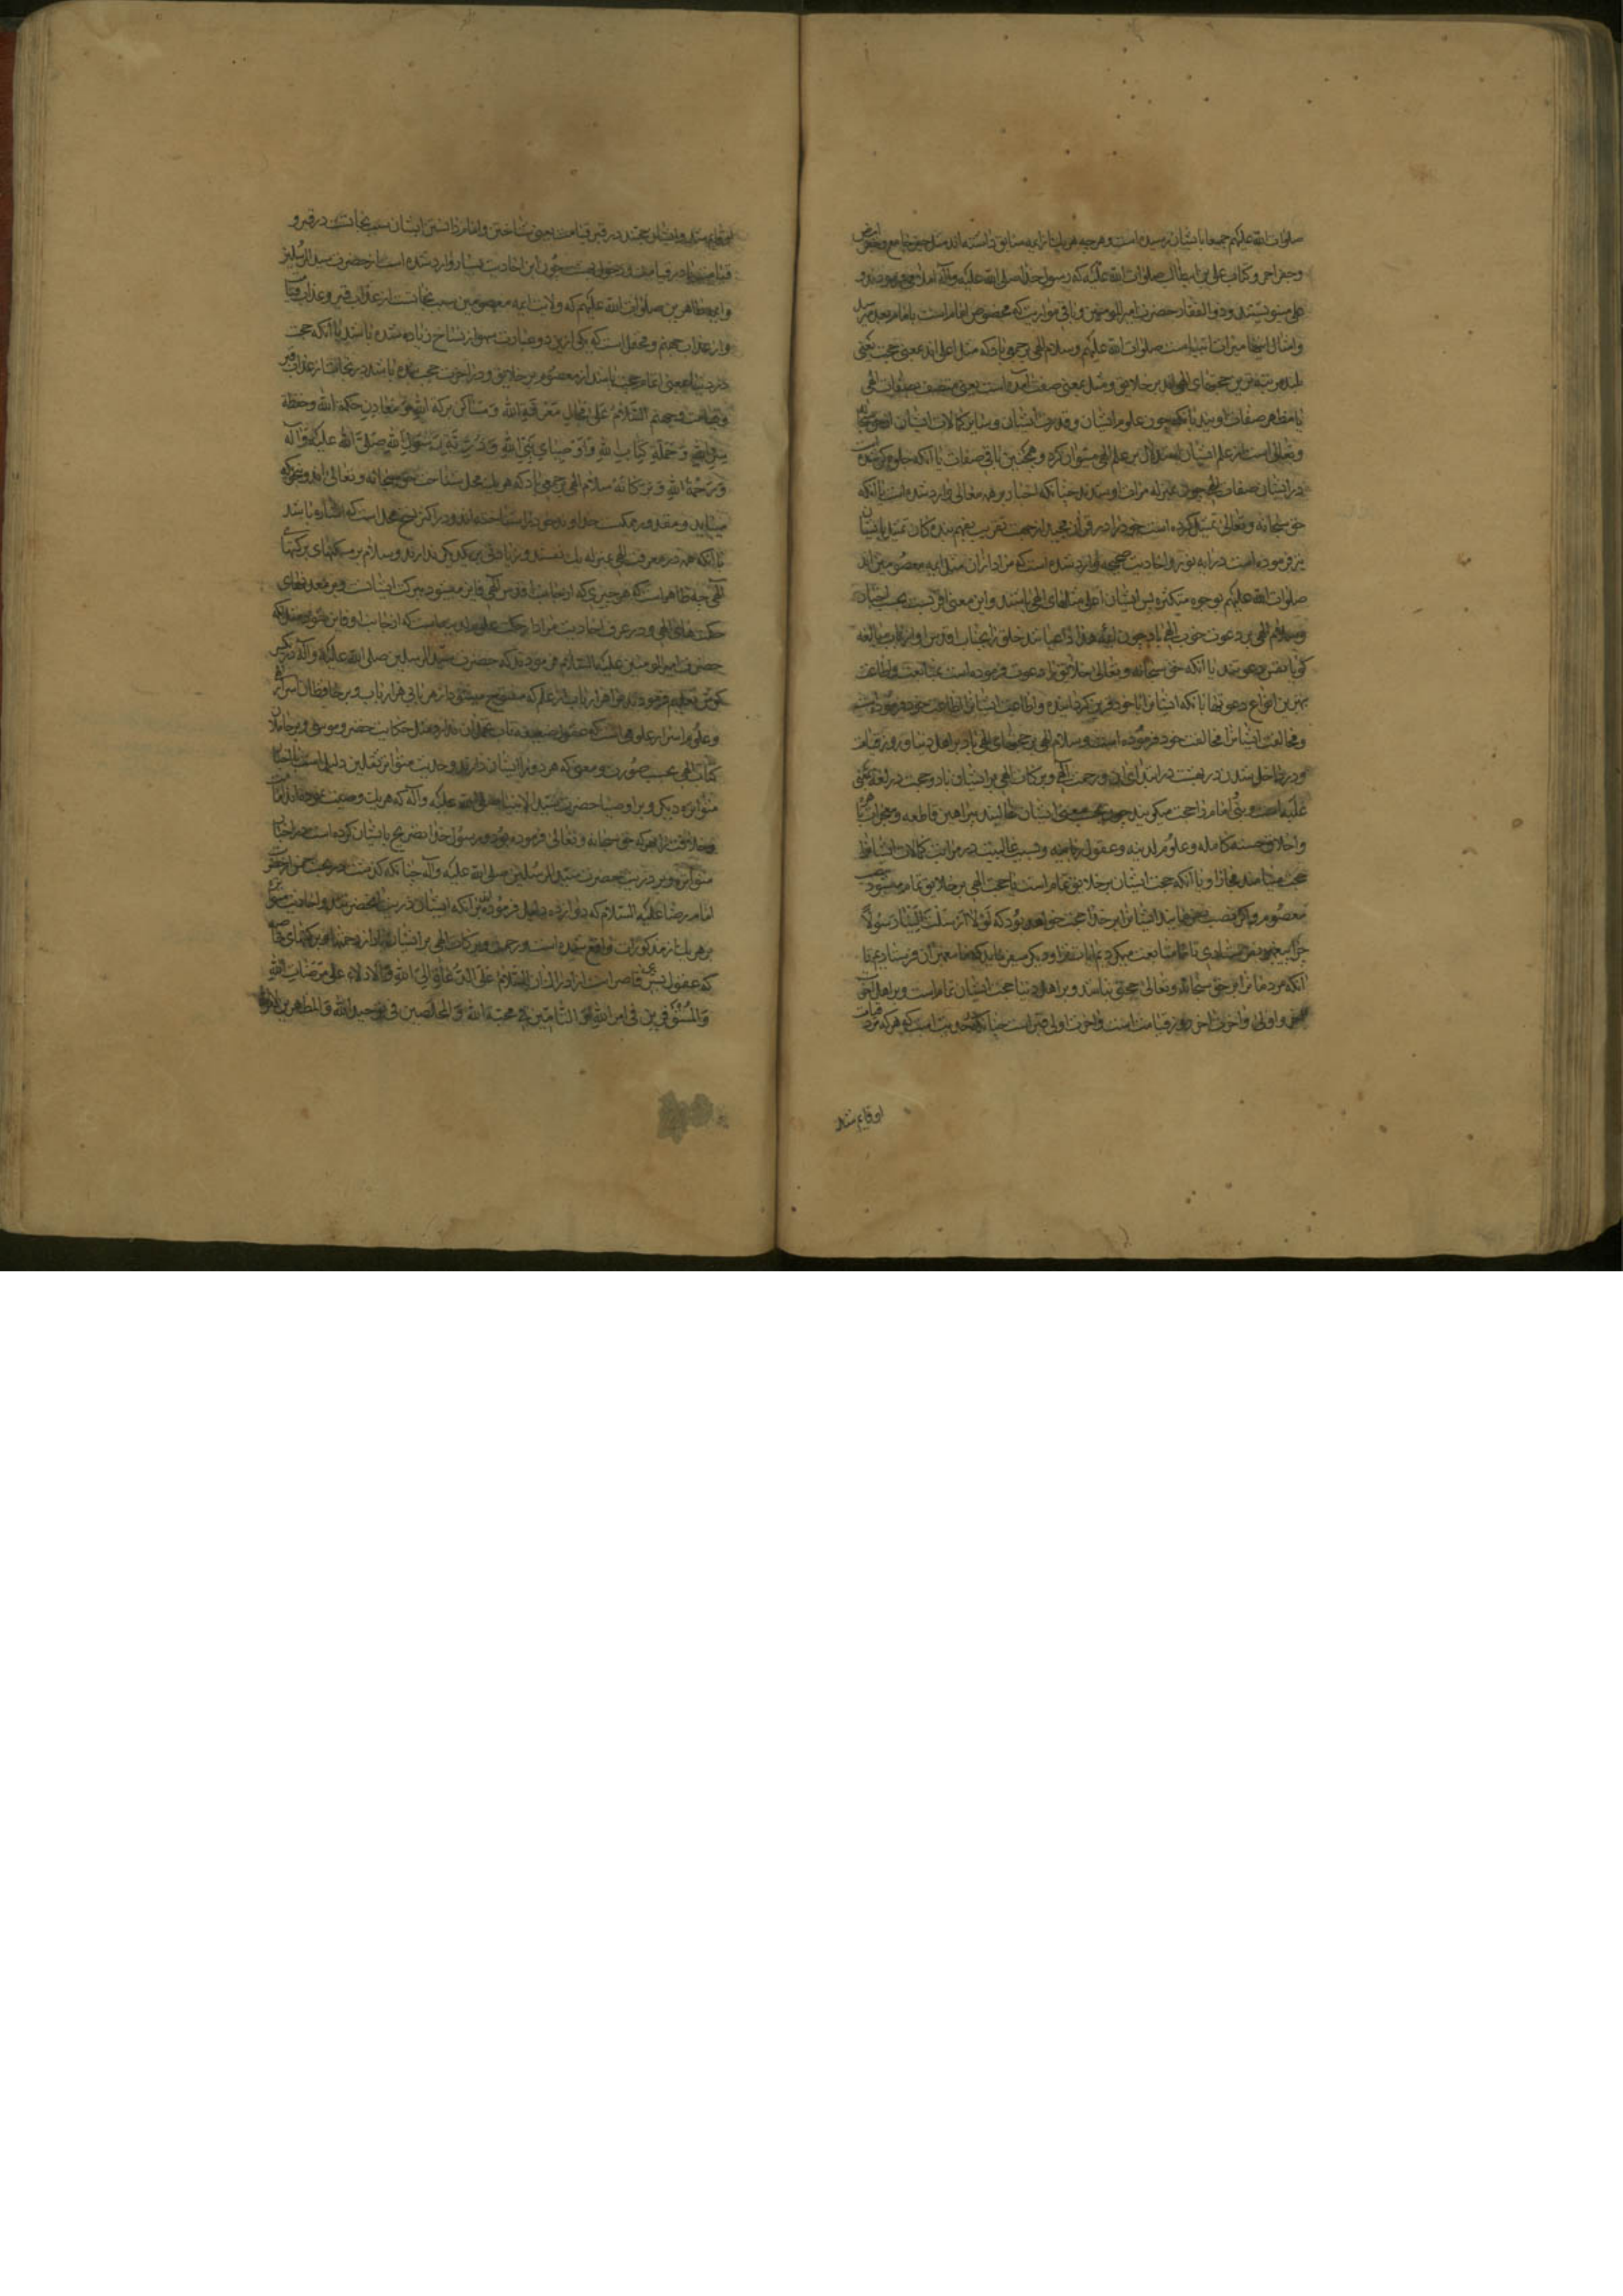 صلوات الله علیهم جمیعا بایشان رسیده است و هر چه هر یک از ایمه سابق داشته اند مثل جفر جامع و جفر ابیض
و جفر احمر و کتاب علی بن ابیطالب صلوات الله علیه که رسول خدا صلی الله علیه و آله املا می فرمودند و
علی مینوشتند و ذو الفقار حضرت امیر المومنین و باقی مواریث که مخصوص امام است بامام بعد میرسد
و امثال اینها میراث انبیاست صلوات الله علیهم و سلام الهی بر جمعی باد که مثل اعلی اند بمعنی حجت یعنی
بلند مرتبه ترین حجتهای الهی اند بر خلایق و مثل بمعنی صفت آمده است یعنی متصف بصفات الهی
یا مظهر صفات اویند یا آنکه چون علوم ایشان و قدرت ایشان و سایر کمالات ایشان از حق سبحانه
و تعالی است از علم ایشان استدلال بر علم الهی میتوان کرد و همچنین باقی صفات یا آنکه جلوه گر شده
در ایشان صفات الهی چون بمنزله مرآت او شدند چنانکه اخبار بر همه معانی وارد شده است یا آنکه
حق سبحانه و تعالی تمثیل کرده است خود را در قرآن مجید از جهت تقریب بفهم بندگان تمثیل بایشان
نیز فرموده است در آیه نور و احادیث صحیحه وارد شده است که مراد از آن مثل ایمه معصومین اند
صلوات الله علیهم بوجوه متکثره پس ایشان اعلی مثلهای الهی باشند و این معنی اقربست بحسب اخبار
و سلام الهی بر دعوت خوب الهی باد چون ایمه هدی داعیانند خلق را بجناب اقدس او از باب مبالغه
گویا نفس دعوتند یا آنکه حق سبحانه و تعالی خلایق را دعوت فرموده است بمتابعت و اطاعت
بهترین انواع دعوتها بآنکه ایشانرا با خود قرین گردانیده و اطاعت ایشانرا اطاعت خود فرموده است
و مخالفت ایشانرا مخالفت خود فرموده است و سلام الهی بر حجتهای الهی باد بر اهل دنیا و روز قیامت
و در داخل شدن در بهشت در ابتدای آن و رحمت الهی و برکات الهی بر ایشان باد و حجت در لغة بمعنی
غلبه است و نبی و امام را حجت میگویند چون بحسب معنی ایشان غالبند ببراهین قاطعه و معجزات باهره
و اخلاق حسنه کامله و علوم لدنیه و عقول رضیه و بسبب غالبیت در مراتب کمالات ایشانرا
حجت مینامند مجازا و یا آنکه حجت ایشان بر خلایق تمام است یا حجت الهی بر خلایق تمام میشود بنصب
معصوم و اگر نصب نمی نمایند ایشانرا بر خدا حجت خواهد بود که لولا ارسلت الینا رسولا
چرا پیغمبری نفرستادی تا ما متابعت میکردیم آیات ترا و دیگر میفرماید که ما پیغمبران فرستادیم تا
آنکه مردمانرا بر حق سبحانه و تعالی حجتی نباشد و بر اهل دنیا حجت ایشان تمام است و بر اهل آخرت
و اولی و آخرت آخر روز قیامت است و آخرت اولی قبر است چنانکه در حدیث است که هر که مرد قیامت
او قایم شد
قیامت یا در قیامت و دخول بهشت چون این احادیث بسیار وارد شده است از حضرت سید المرسلین
و ایمه طاهرین صلوات الله علیهم که ولایت ایمه معصومین سبب نجاتست از عذاب قبر و عذاب قیامت
و از عذاب جهنم و محتمل است که یکی ازین دو عبارت سهو از نساخ زیاده شده باشد یا آنکه حجت
در دنیا بمعنی اتمام حجت باشد از معصوم بر خلایق و در آخرت حجت بنده باشد در نجات از عذاب قبر
و قیامت و جهنم السلام علی محال معرفة الله و مساکن برکة الله و معادن حکمة الله و حفظة
سر الله و حملة کتاب الله و اوصیاء نبی الله و ذریة رسول الله صلی الله علیه و آله
و رحمة الله و برکاته سلام الهی بر جمعی باد که هر یک محل شناخت حق سبحانه و تعالی اند و چنانکه
میباید و مقدور ممکنست خداوند خود را شناخته اند و در اکثر نسخ محل است که اشاره باشد
بآنکه همه در معرفت الهی بمنزله یک نفسند و زیادتی بر یکدیگر ندارند و سلام بر مسکنهای برکتهای
الهی چه ظاهر است که هر چیزی که از جناب اقدس الهی فایز میشود ببرکت ایشانست و بر معدنهای
حکمتهای الهی و در عرف احادیث مراد از حکمت علوم لدنیه است که از جانب او فایز شود چنانکه
حضرت امیر المومنین علیه السلام فرمودند که حضرت سید المرسلین صلی الله علیه و آله در یک
نفس تعلیم فرمودند مرا هزار باب از علم که مفتوح میشود از هر بابی هزار باب و بر حافظان اسرار الهی
و علوم اسرار علومی است که عقول ضعیفه تاب تحمل آن ندارد مثل حکایت خضر و موسی و بر حاملان
کتاب الهی بحسب صورت و معنی که هر دو نزد ایشان دارند و حدیث متواتر ثقلین دلیل است با اخبار
متواتره دیگر و بر اوصیا حضرت سید الانبیا صلی الله علیه و آله که هر یک وصیت نموده اند امامت
و خلافت را بهر که حق سبحانه و تعالی فرموده بود و رسول خدا تصریح بایشان کرده است در اخبار
متواتره و بر ذریت حضرت سید المرسلین صلی الله علیه و آله چنانکه گذشت در بحث خمس از حضرت
امام رضا علیه السلام که دوازده دلیل فرمودند بر آنکه ایشان ذریت آنحضرتند و احادیث متواتره
بر هر یک از مذکورات واقع شده است و رحمت و برکات الهی بر ایشان باد از رحمتها و برکتهای خاصه
که عقول بشری قاصر است از ادراک آن السلام علی الدعاة الی الله و الادلاء علی مرضات الله
و المستوفرین فی امر الله و التامین فی محبة الله و المخلصین فی توحید الله و المظهرین لامر الله